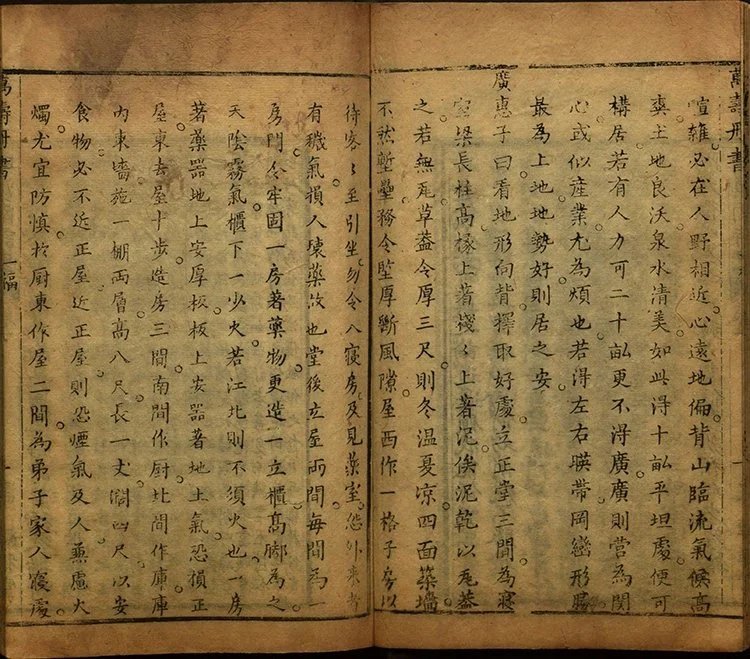 萬壽丹書
喧雜必在人野相近心遠地偏背山臨流氣候高
爽土地良沃泉水清美如此得十畝平坦處便可
構居若有人力可二十畝更不得廣廣則營為関
心或似産業尤為煩也若得左右暎帶岡巒形勝
最為上地地勢好則居之安
廣惠子曰看地形向背擇取好處立正堂三間為寢
室梁長柱高椽上著棧〻上著泥俟泥乾以瓦葢
之若無瓦草葢令厚三尺則冬温夏凉四面築墻
不然塹壘務令堅厚斷風隙屋西作一格子房以
待客〻至引坐勿令入寢房及見藥室恐外來者
有穢氣損人壊藥故也堂後立屋両間每間為一
房門令牢固一房著藥物更造一立櫃高脚為之
天陰霧氣櫃下一少火若江北則不須火也一房
著藥器地上安厚板板上安器著地土氣恐損正
屋東去屋十步造房三間南間作厨北間作庫庫
内東墻施一棚両層高八尺長一丈濶四尺以安
食物必不近正屋近正屋則恐煙氣及人兼慮火
燭尤宜防慎於厨東作屋二間為弟子家人寢處
萬壽丹書
福